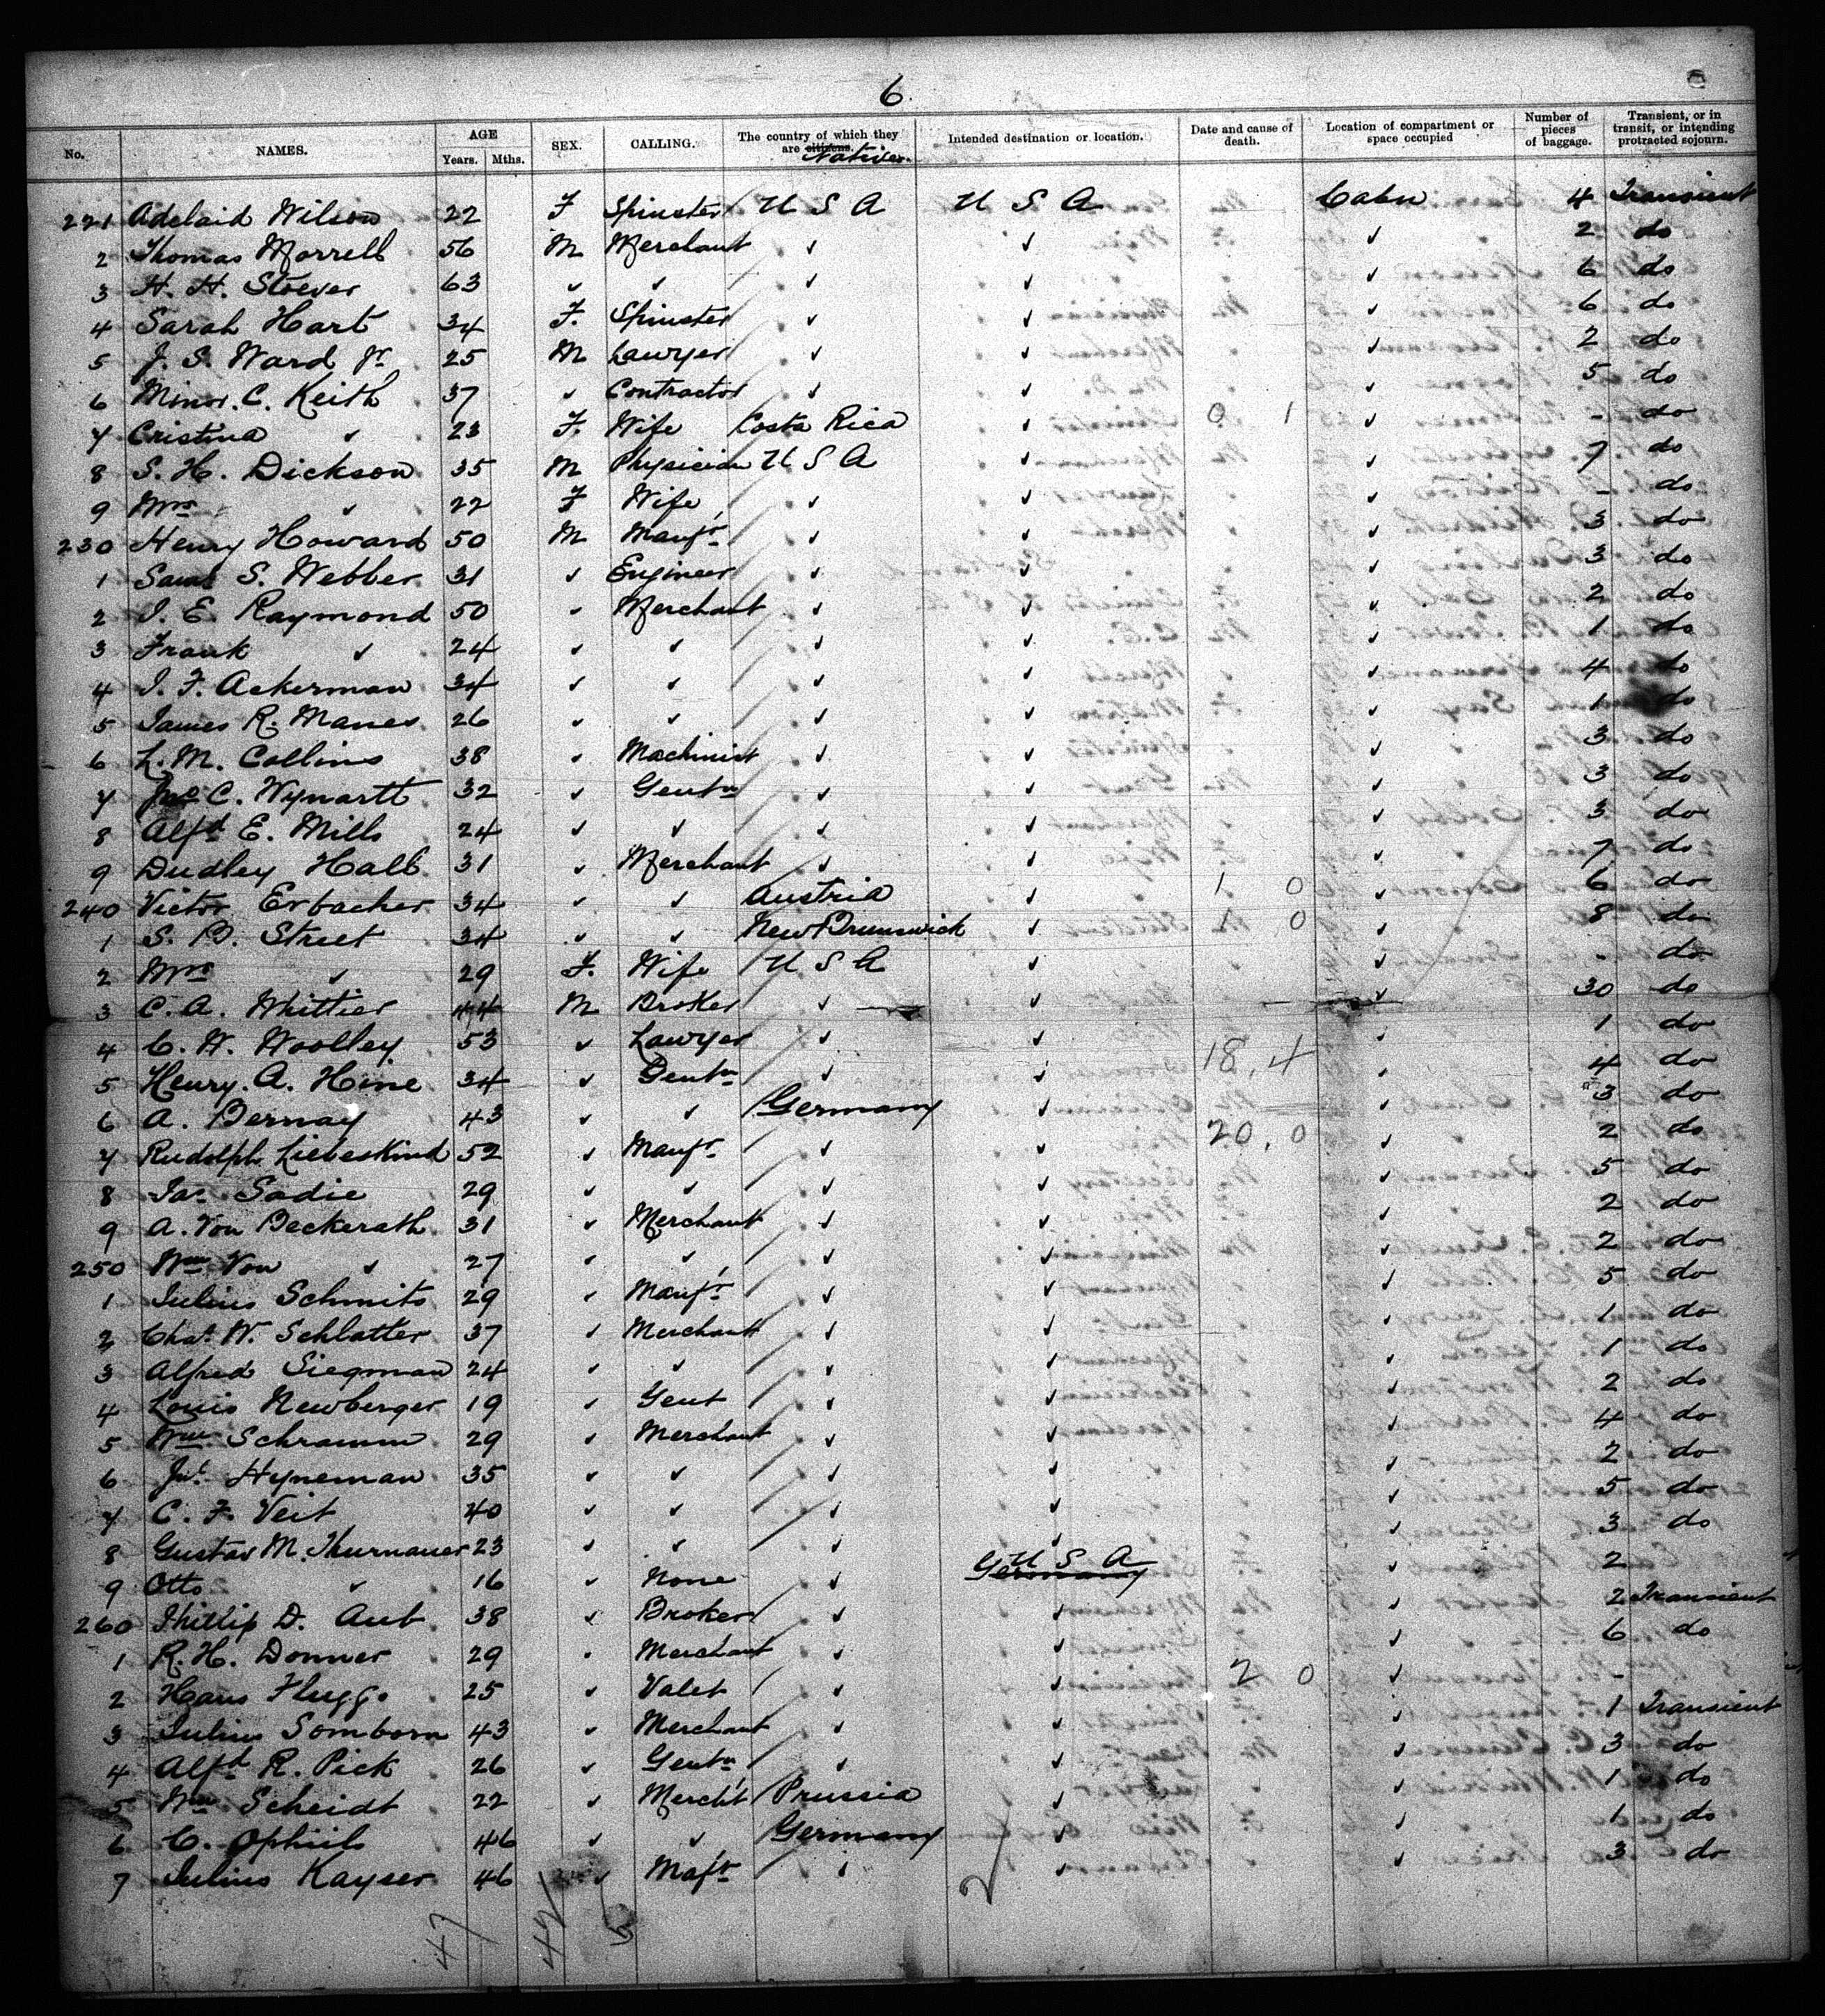 6.
No. NAMES. AGE Years. Mths. SEX. CALLING. The country of which they are citizens. Natives. Intended destination or location. Date and cause of death. Location of compartment or space occupied Number of pieces of baggage. Transient, or in transit, or intending protracted sojourn.
221 Adelaid Wilson 22 F Spinster U S A U S A Cabin 4 Transient
2 Thomas Morrell 56 M Merchant ✓ ✓ ✓ 2 do
3 H. H. Stoever 63 ✓ ✓ ✓ ✓ ✓ 6 do
4 Sarah Hart 34 F. Spinster ✓ ✓ ✓ 6 do
5 J. S. Ward Jr 25 M Lawyer ✓ ✓ ✓ 2 do
6 Minor. C. Keith 37 ✓ Contractor ✓ ✓ ✓ 5 do
7 Cristina ✓ 23 F. Wife Costa Rica ✓ 0 1 ✓ - do
8 S. H. Dickson 35 M Physician U S A ✓ ✓ 7 do
9 Mrs ✓ 22 F Wife ✓ ✓ ✓ - do
230 Henry Howard 50 M Manfr ✓ ✓ ✓ 3 do
1 Saml S. Webber 31 ✓ Engineer ✓ ✓ ✓ 3 do
2 I. E. Raymond 50 ✓ Merchant ✓ ✓ ✓ 2 do
3 Frank ✓ 24 ✓ ✓ ✓ ✓ ✓ 1 do
4 I. F. Ackerman 34 ✓ ✓ ✓ ✓ ✓ 4 do
5 James R. Manes 26 ✓ ✓ ✓ ✓ ✓ 1 do
6 L. M. Collins 38 ✓ Machinist ✓ ✓ ✓ 3 do
7 Jno C. Wynartt 32 ✓ Gentn ✓ ✓ ✓ 3 do
8 Alfd E. Mills 24 ✓ ✓ ✓ ✓ ✓ 3 do
9 Dudley Hall 31 ✓ Merchant ✓ ✓ ✓ 7 do
240 Victor Erbacher 34 ✓ ✓ Austria ✓ 1 0 ✓ 6 do
1 S. B. Street 34 ✓ ✓ New Brunswick ✓ 1 0 ✓ 8 do
2 Mrs ✓ 29 F. Wife U S A ✓ ✓ - do
3 C. A. Whittier 44 M Broker ✓ ✓ ✓ 30 do
4 C. W. Woolley 53 ✓ Lawyer ✓ ✓ ✓ 1 do
5 Henry. A. Hine 34 ✓ Gentn ✓ ✓ 18, 4 ✓ 4 do
6 A. Bernay 43 ✓ ✓ Germany ✓ ✓ 3 do
7 Rudolph Liebeskind 52 ✓ Manfr ✓ ✓ 20, 0 ✓ 2 do
8 Jas Sadie 29 ✓ ✓ ✓ ✓ ✓ 5 do
9 A. Von Beckerath 31 ✓ Merchant ✓ ✓ ✓ 2 do
250 Wm Von ✓ 27 ✓ ✓ ✓ ✓ ✓ 2 do
1 Julius Schmits 29 ✓ Manfr ✓ ✓ ✓ 5 do
2 Chas. W. Schlatter 37 ✓ Merchant ✓ ✓ ✓ 1 do
3 Alfred Siegman 24 ✓ ✓ ✓ ✓ ✓ 1 do
4 Louis Newberger 19 ✓ Gent ✓ ✓ ✓ 2 do
5 Wm Schramm 29 ✓ Merchant ✓ ✓ ✓ 4 do
6 Hyneman 35 ✓ ✓ ✓ ✓ ✓ 2 do
7 C. F. Veit 40 ✓ ✓ ✓ ✓ ✓ 5 do
8 Gustav M. Thurnauer 23 ✓ ✓ ✓ ✓ ✓ 3 do
9 Otto ✓ 16 ✓ None ✓ Germany U S A ✓ 2
260 Phillip D. Aub 38 ✓ Broker ✓ ✓ ✓ 2 Transient
1 R. H. Donner 29 ✓ Merchant ✓ ✓ ✓ 6 do
2 Hans Flugge 25 ✓ Valet ✓ ✓ 2 0 ✓ -
3 Julius Somborn 43 ✓ Merchant ✓ ✓ ✓ 1 Transient
4 Alfd R. Pick 26 ✓ Gentn ✓ ✓ ✓ 3 do
5 Wm Scheidt 22 ✓ Mercht Prussia ✓ ✓ 1 do
6 C. Ophüls 46 ✓ ✓ Germany ✓ ✓ 1 do
7 Julius Kayser 46 ✓ Mafr ✓ ✓ ✓ 3 do
47 42 5 2